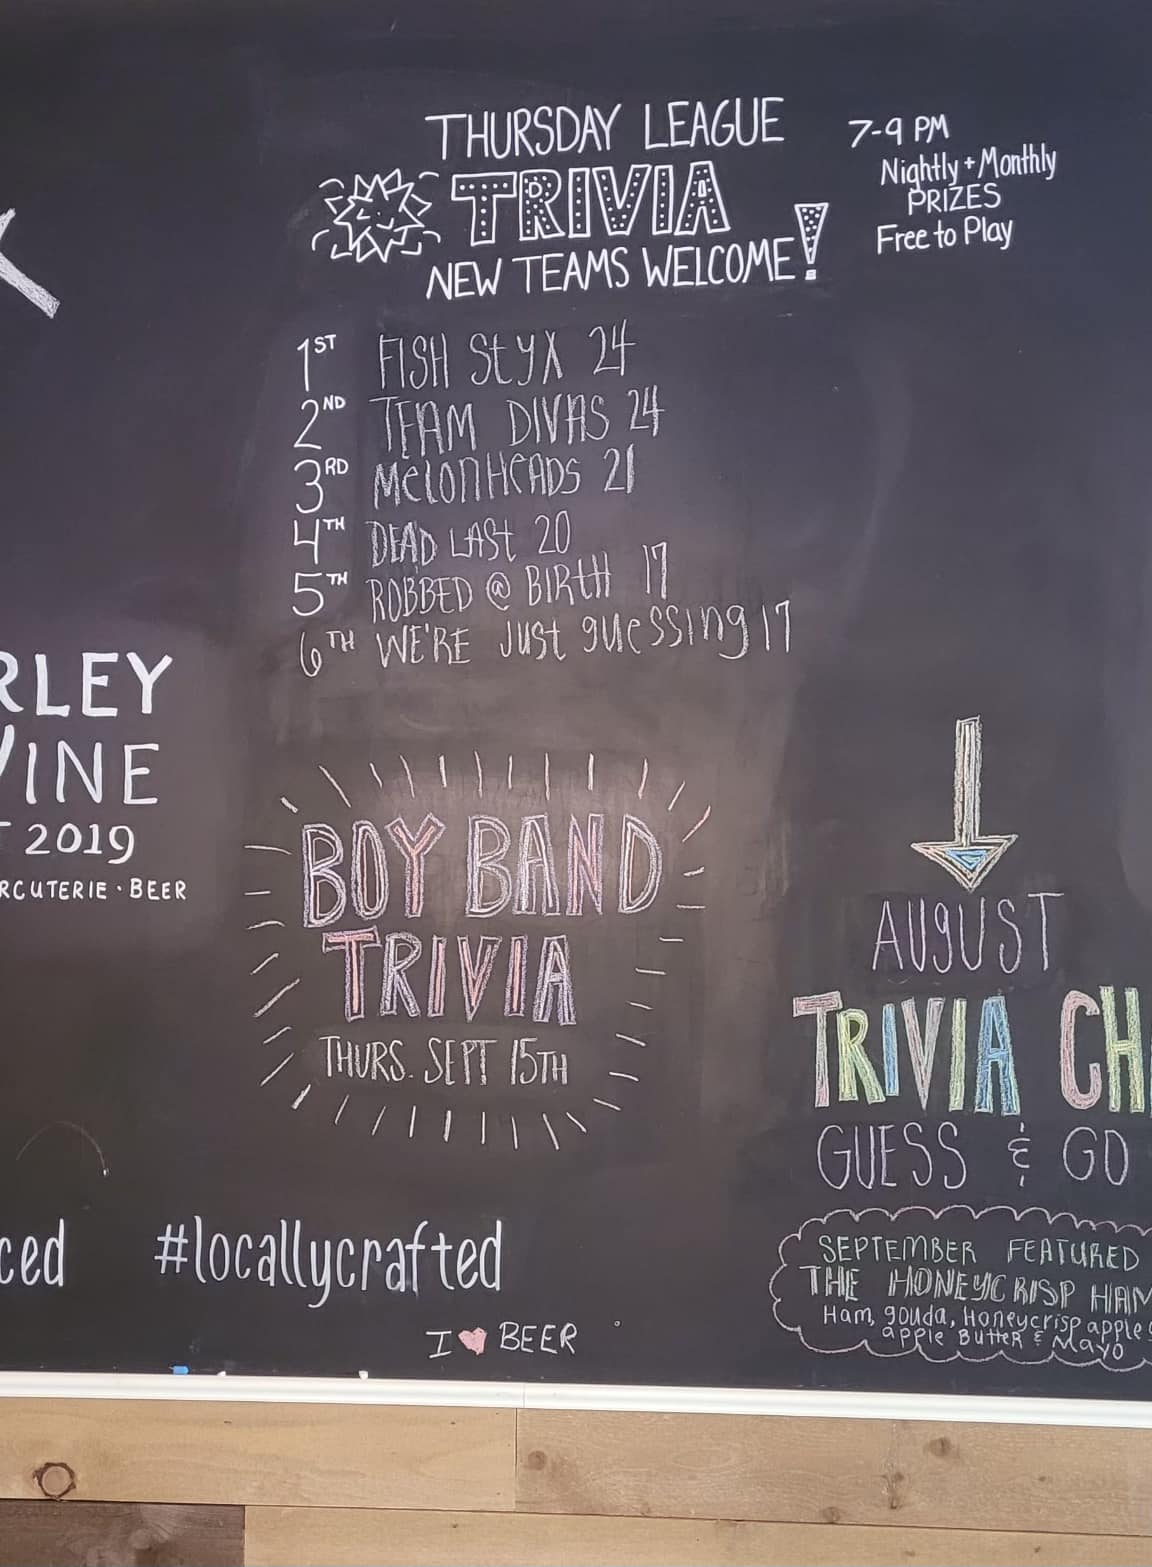 THURSDAY LEAGUE
TRIVIA
NEW TEAMS WELCOME!
7-9 PM
Nightly + Monthly
PRIZES
Free to Play
1ST FISH StYX 24
2ND TEAM DIVAS 24
3RD MelonHeADS 21
4TH DEAD LASt 20
5TH ROBBED @ BIRtH 17
6TH WE'RE Just guessing 17
RLEY
INE
2019
RCUTERIE · BEER
BOY BAND
TRIVIA
THURS. SEPT 15TH
AUGUST
TRIVIA CH
GUESS & GO
SEPTEMBER FEATURED
THE HONEYCRISP HAM
Ham, gouda, Honeycrisp apple
apple ButteR & Mayo
ced #locallycrafted
I ♥ BEER